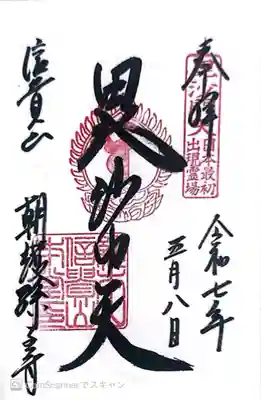 奉拝
日本最初
出現霊場
令和七年
五月八日
毘沙門天
信貴山
朝護孫子寺
CamScannerでスキャン